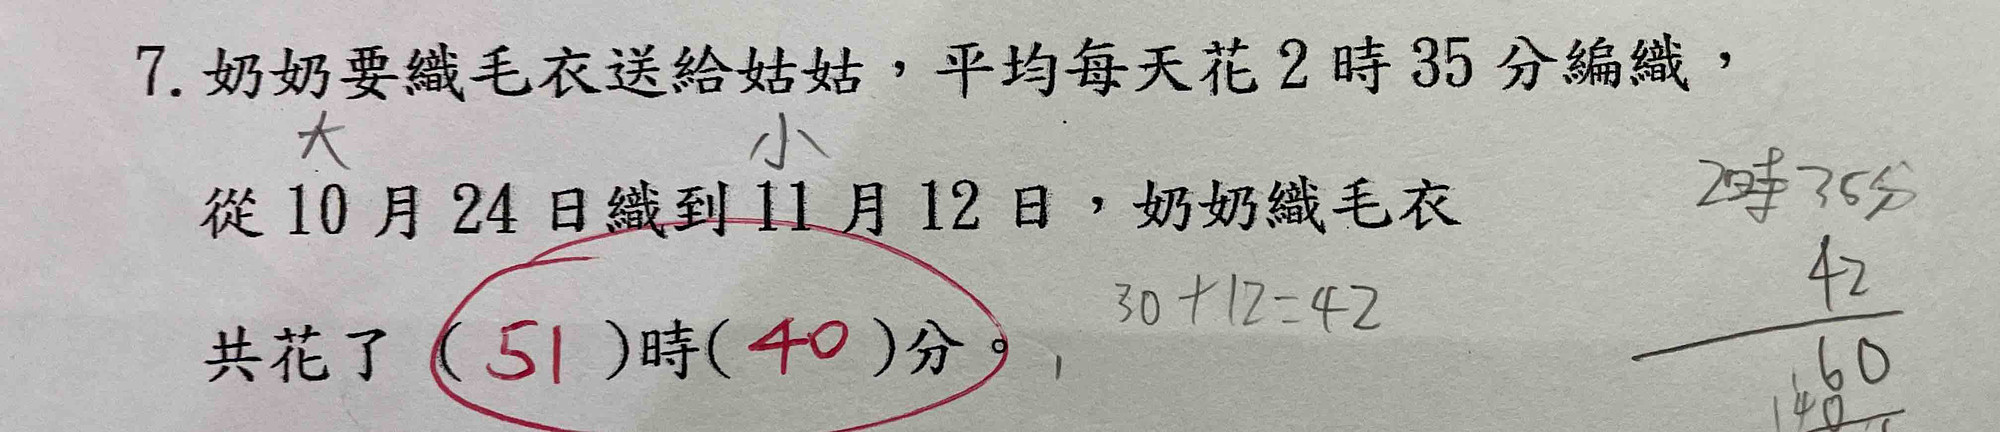 7. 奶奶要織毛衣送給姑姑，平均每天花2時35分編織，
大 小
從10月24日織到11月12日，奶奶織毛衣
2時35分
42
30+12=42
共花了（51）時(40)分。
60